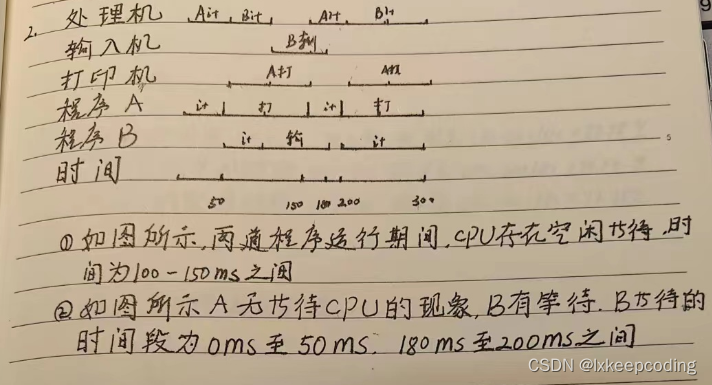 2. 处理机 A计 B计 A计 B计
输入机 B输
打印机 A打 A打
程序A 计 打 计 打
程序B 计 输 计
时间
50 150 180 200 300
①如图所示,两道程序运行期间,CPU存在空闲等待,时
间为100-150ms之间
②如图所示A无等待CPU的现象,B有等待.B等待的
时间段为0ms至50ms.180ms至200ms之间
CSDN @lxkeepcoding